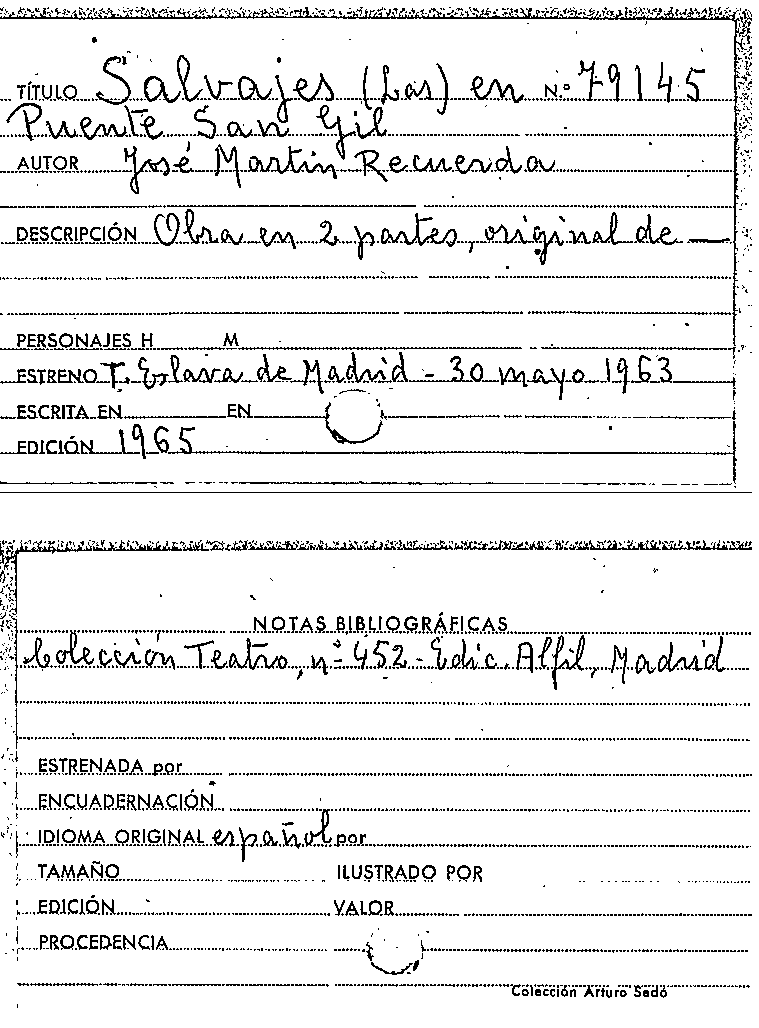 TÍTULO Salvajes (Las) en N.º 79145
Puente San Gil
AUTOR José Martin Recuerda
DESCRIPCIÓN Obra en 2 partes, original de —
PERSONAJES H M
ESTRENO T. Eslava de Madrid - 30 mayo 1963
ESCRITA EN EN
EDICIÓN 1965
NOTAS BIBLIOGRÁFICAS
Colección Teatro, nº 452 - Edic. Alfil, Madrid
ESTRENADA por
ENCUADERNACIÓN
IDIOMA ORIGINAL español por
TAMAÑO ILUSTRADO POR
EDICIÓN VALOR
PROCEDENCIA
Colección Arturo Sedó